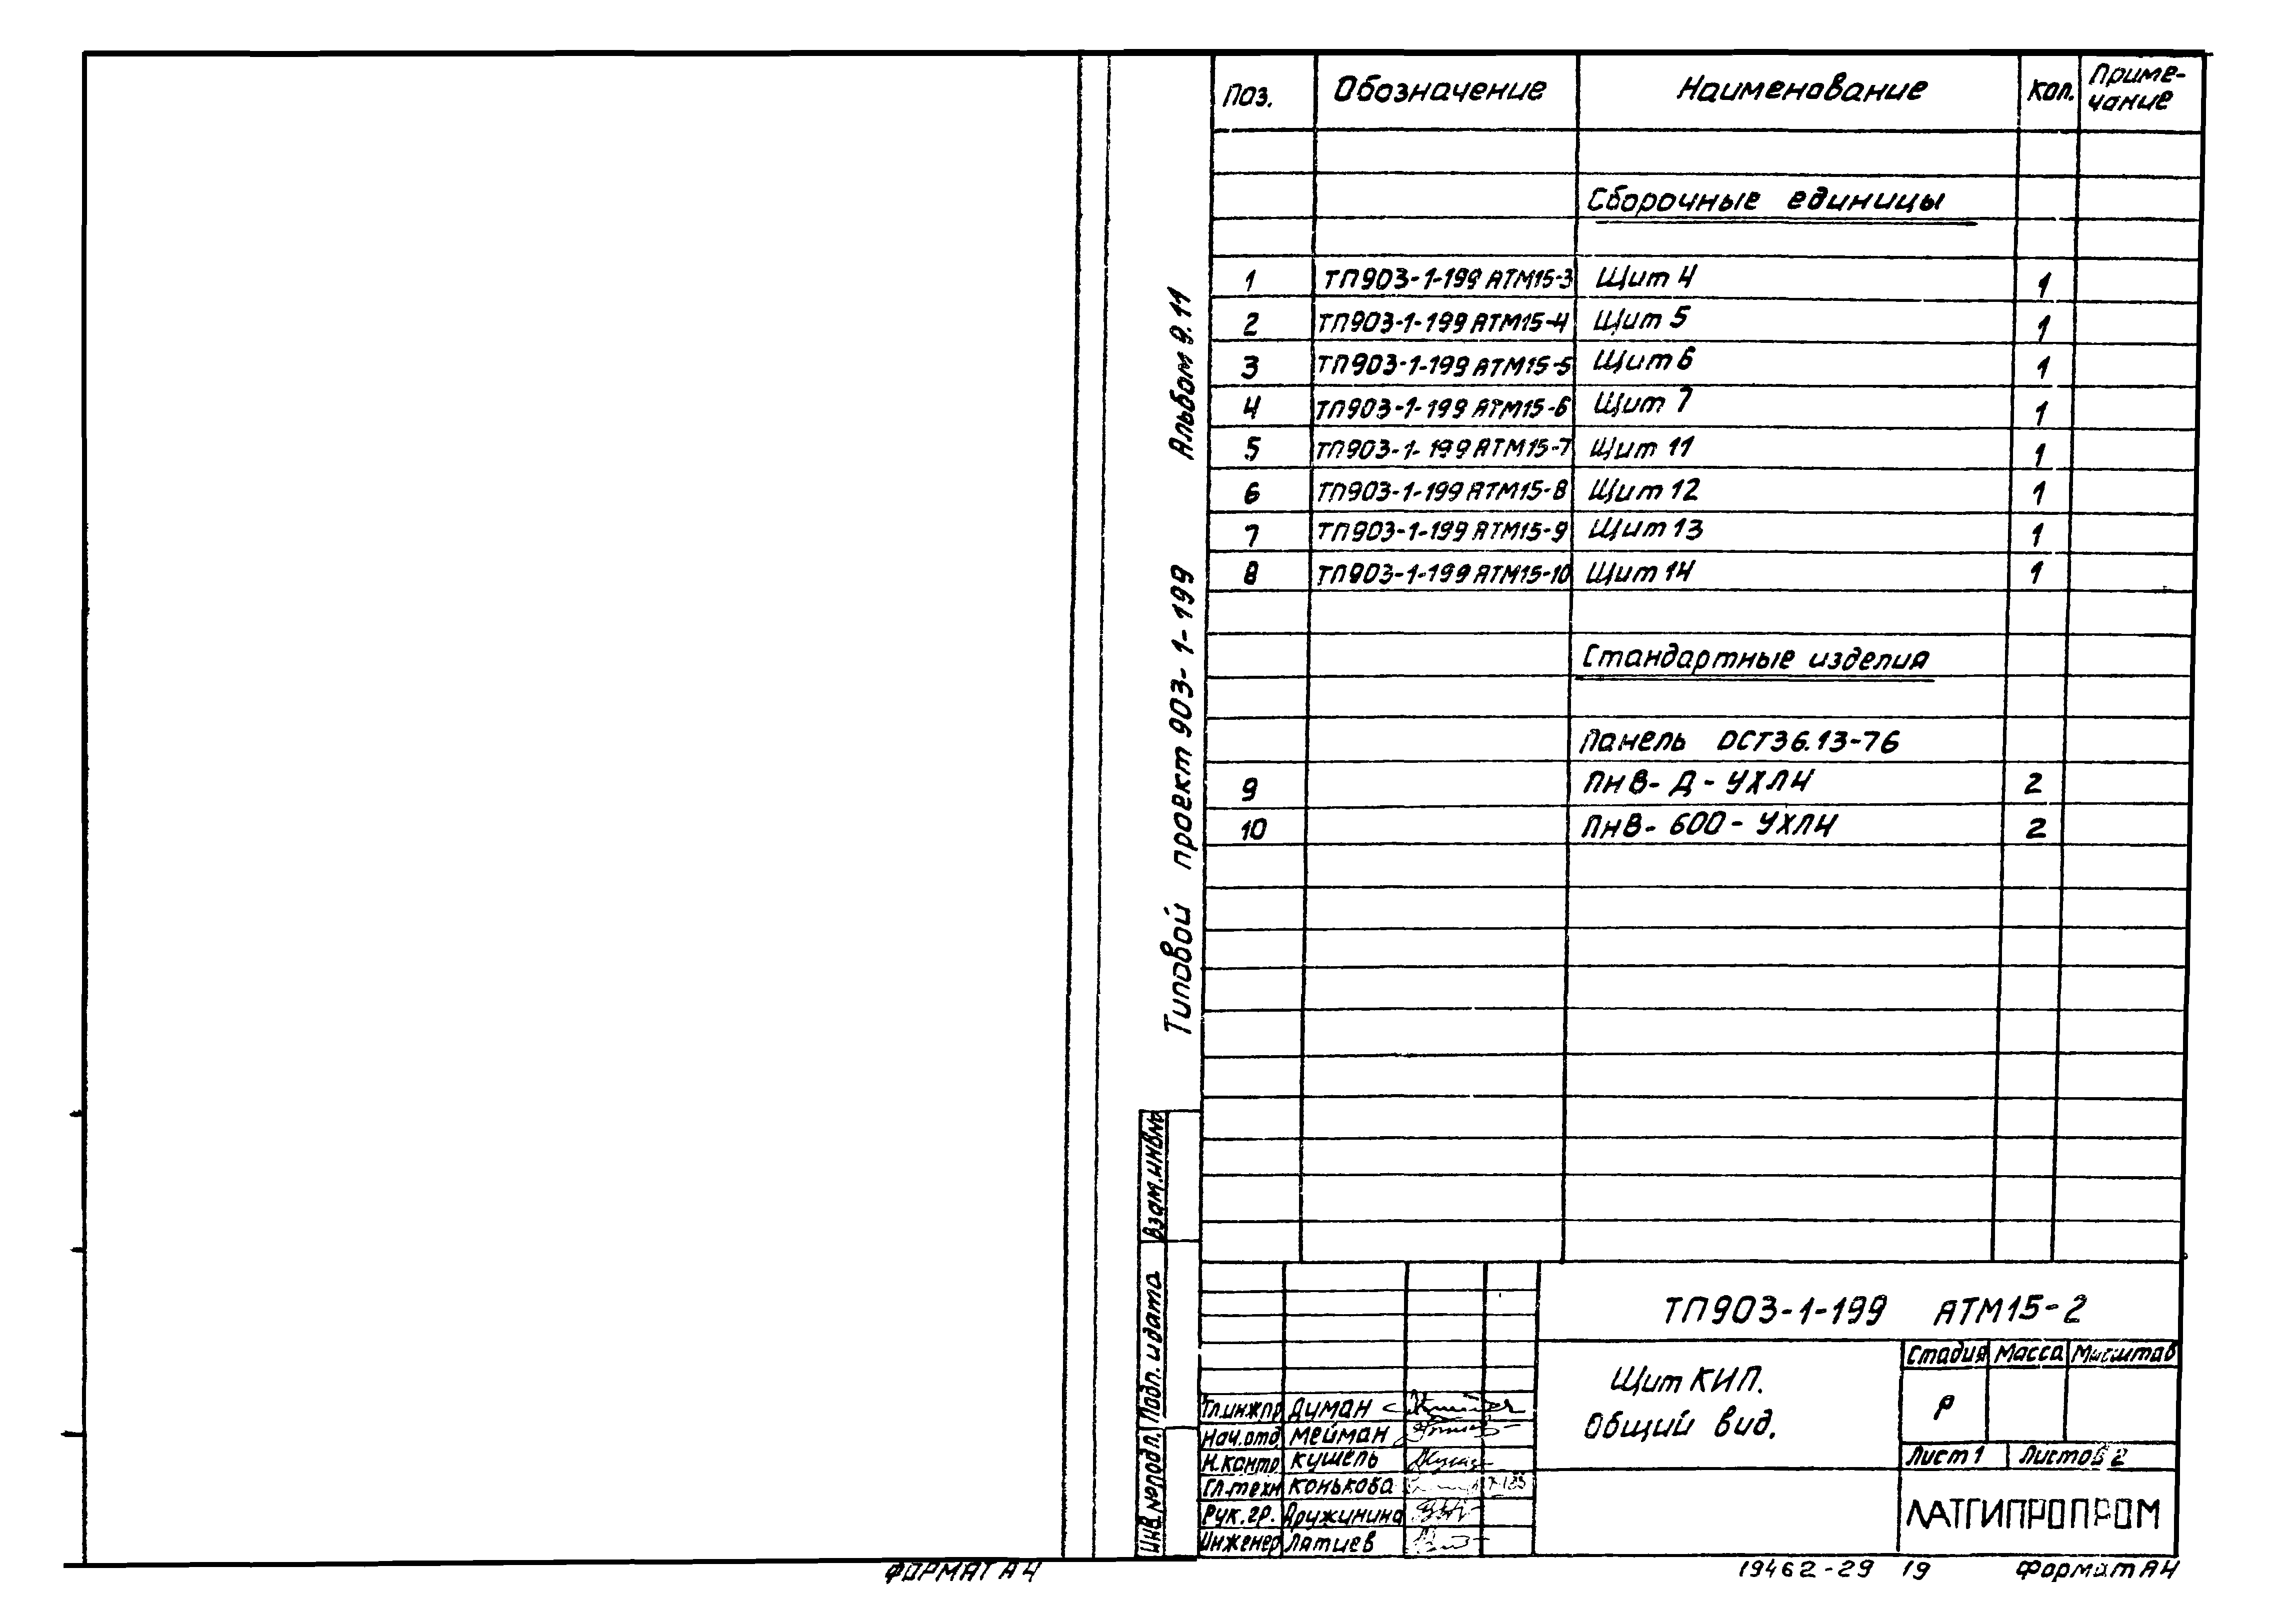 Поз. Обозначение Наименование Кол. Приме-
чание
Сборочные единицы
1 ТП903-1-199 АТМ15-3 Щит 4 1
2 ТП903-1-199 АТМ15-4 Щит 5 1
3 ТП903-1-199 АТМ15-5 Щит 6 1
4 ТП903-1-199 АТМ15-6 Щит 7 1
5 ТП903-1-199 АТМ15-7 Щит 11 1
6 ТП903-1-199 АТМ15-8 Щит 12 1
7 ТП903-1-199 АТМ15-9 Щит 13 1
8 ТП903-1-199 АТМ15-10 Щит 14 1
Стандартные изделия
Панель ОСТ36.13-76
9 ПнВ-Д-УХЛ4 2
10 ПнВ-600-УХЛ4 2
Типовой проект 903-1-199 Альбом 9.11
Взам.инв№
Подп. и дата
Инв.№подл.
ТП903-1-199 АТМ15-2
Щит КИП.
Общий вид.
Стадия Масса Масштаб
Р
Лист 1 Листов 2
ЛАТГИПРОПРОМ
Гл.инж.пр Думан
Нач.отд Мейман
Н.контр Кушель
Гл.техн Конькова
Рук.гр. Дружинина
Инженер Лятиев
ФОРМАТ А4
19462-29 19 Формат А4